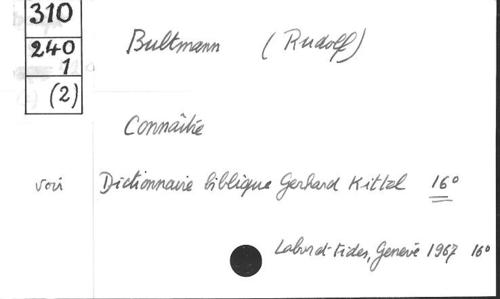 310
240
1
(2)
Bultmann (Rudolf)
Connaître
voir Dictionnaire biblique Gerhard Kittel 16°
Labor et Fides, Genève 1967 16°